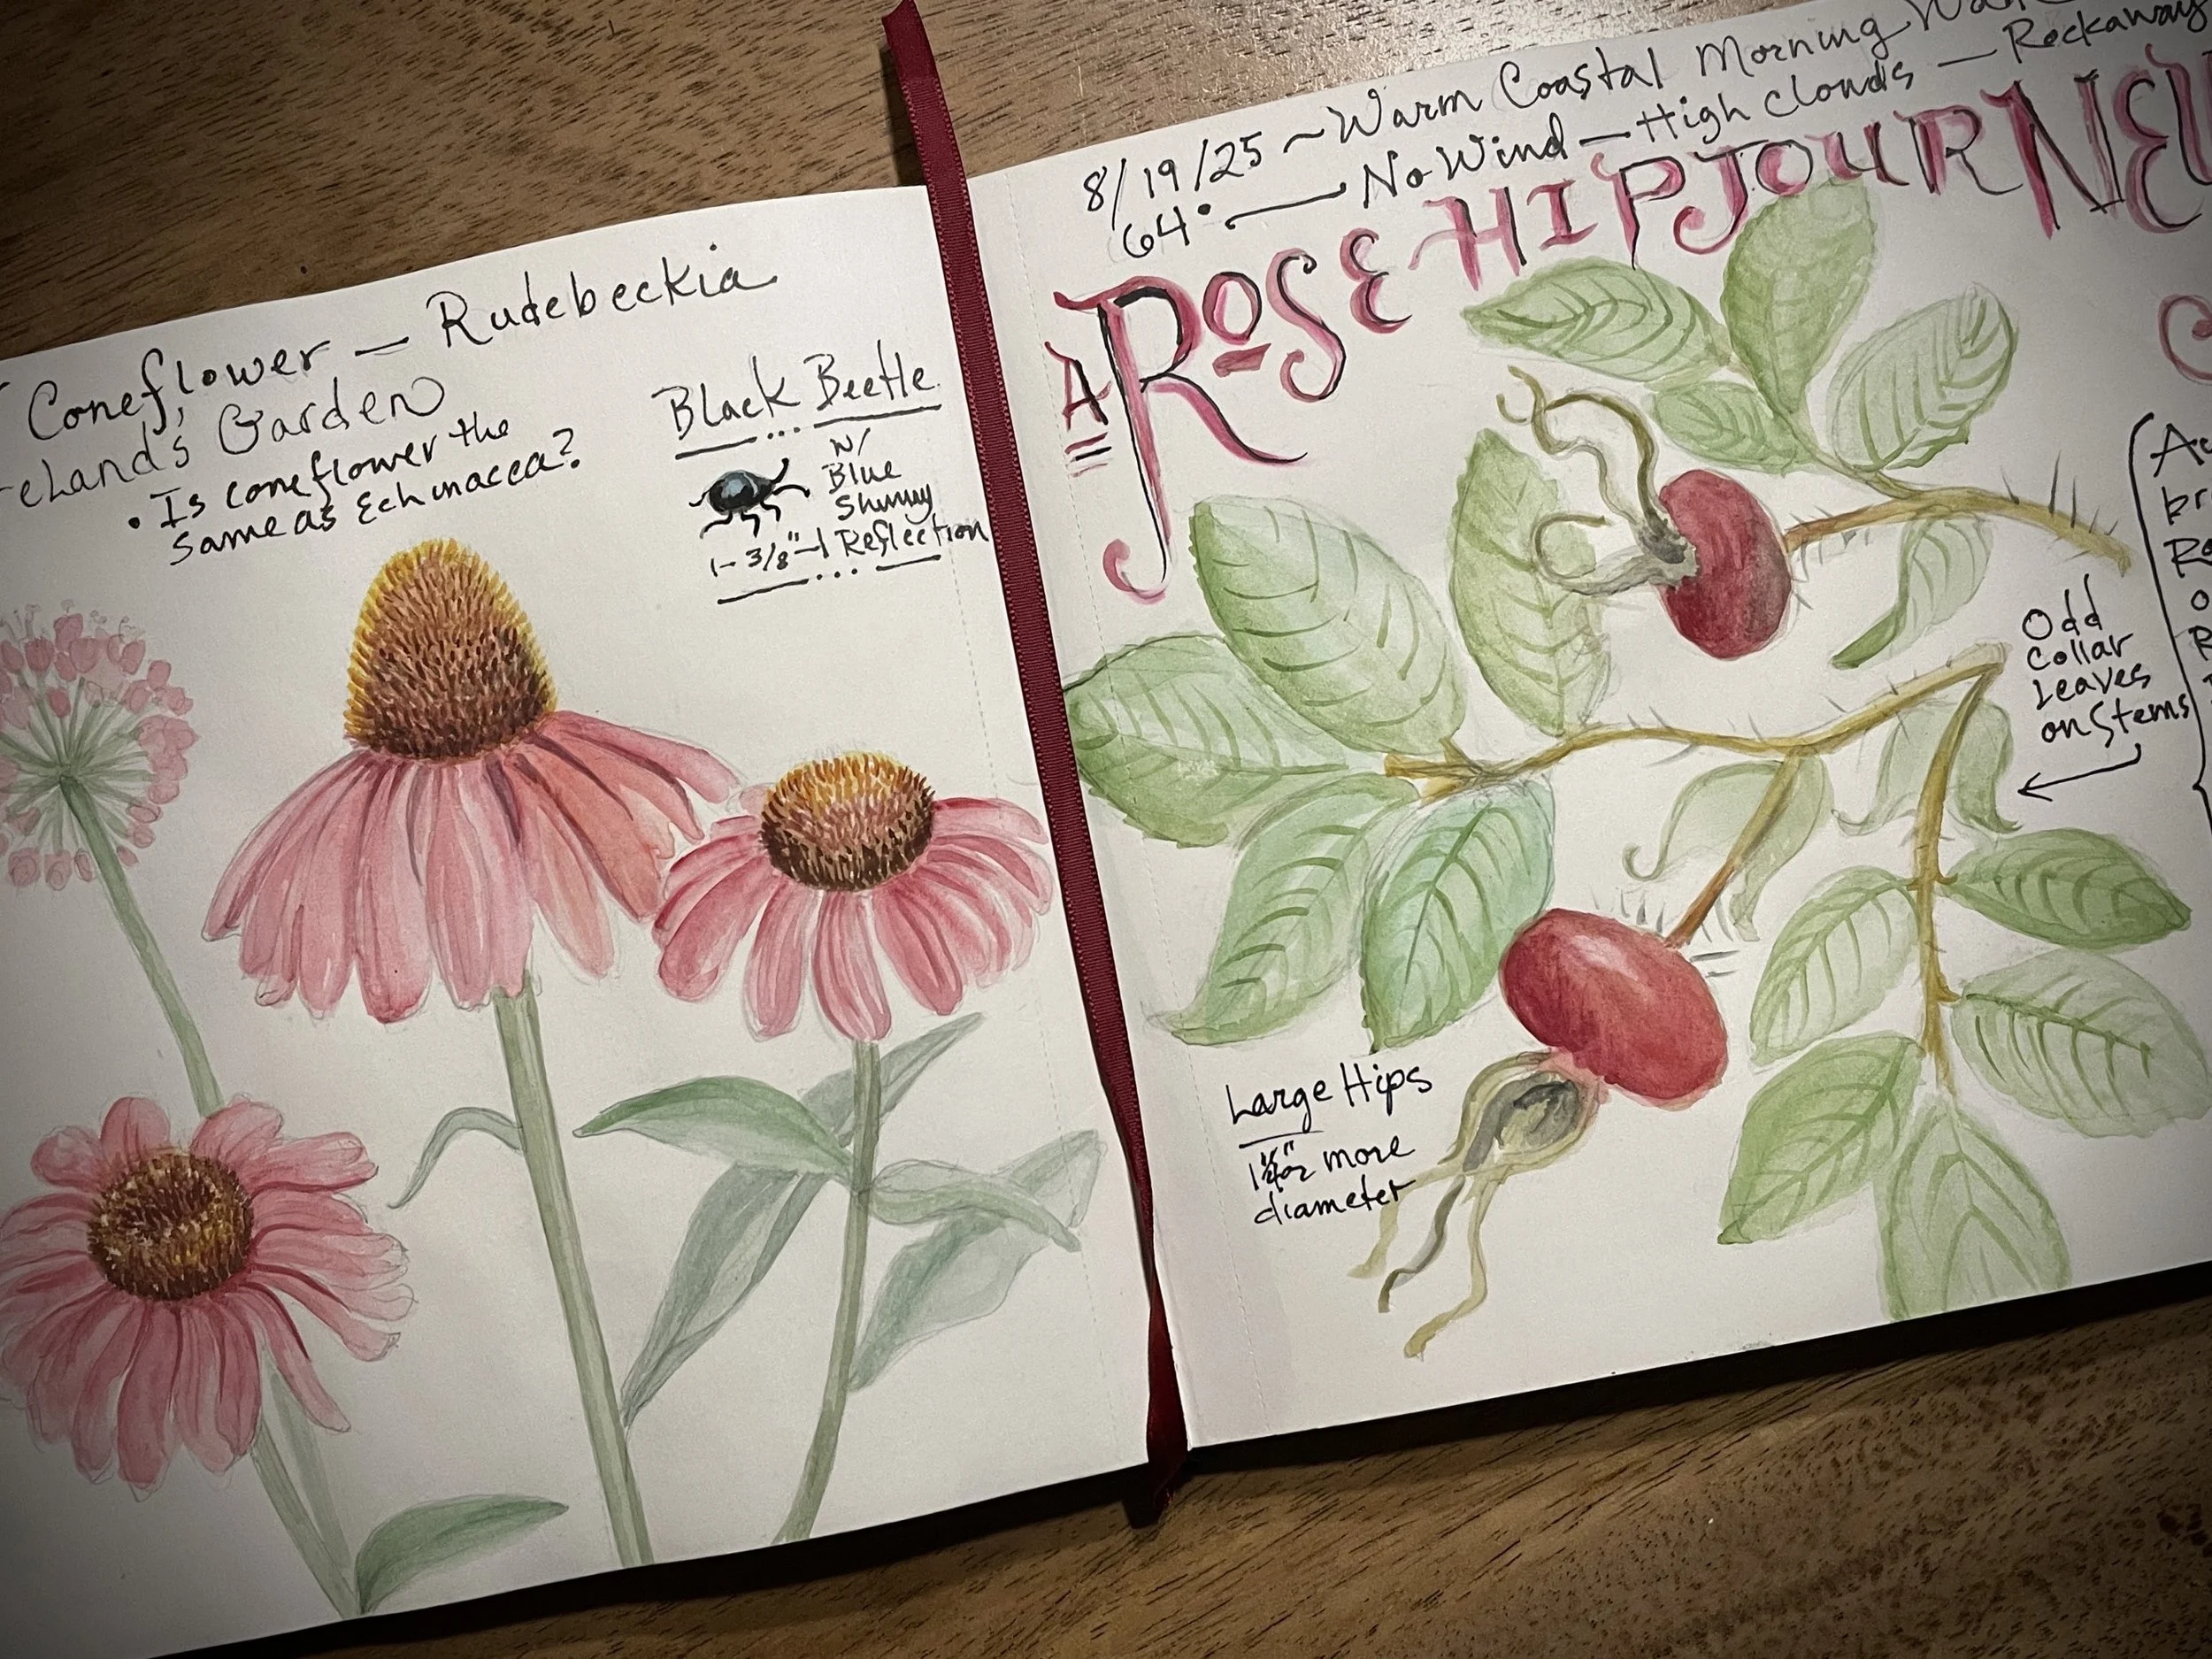 Coneflower — Rudebeckia
Garden
• Is coneflower the
same as Echinacea?
Black Beetle
w/
Blue
Shinny
⊢ 3/8" ⊣ Reflection
8/19/25 ~ Warm Coastal Morning
64° — No Wind — High Clouds — Rockaway
A ROSE HIP JOURNEY
Odd
Collar
Leaves
on Stems
Large Hips
or more
diameter